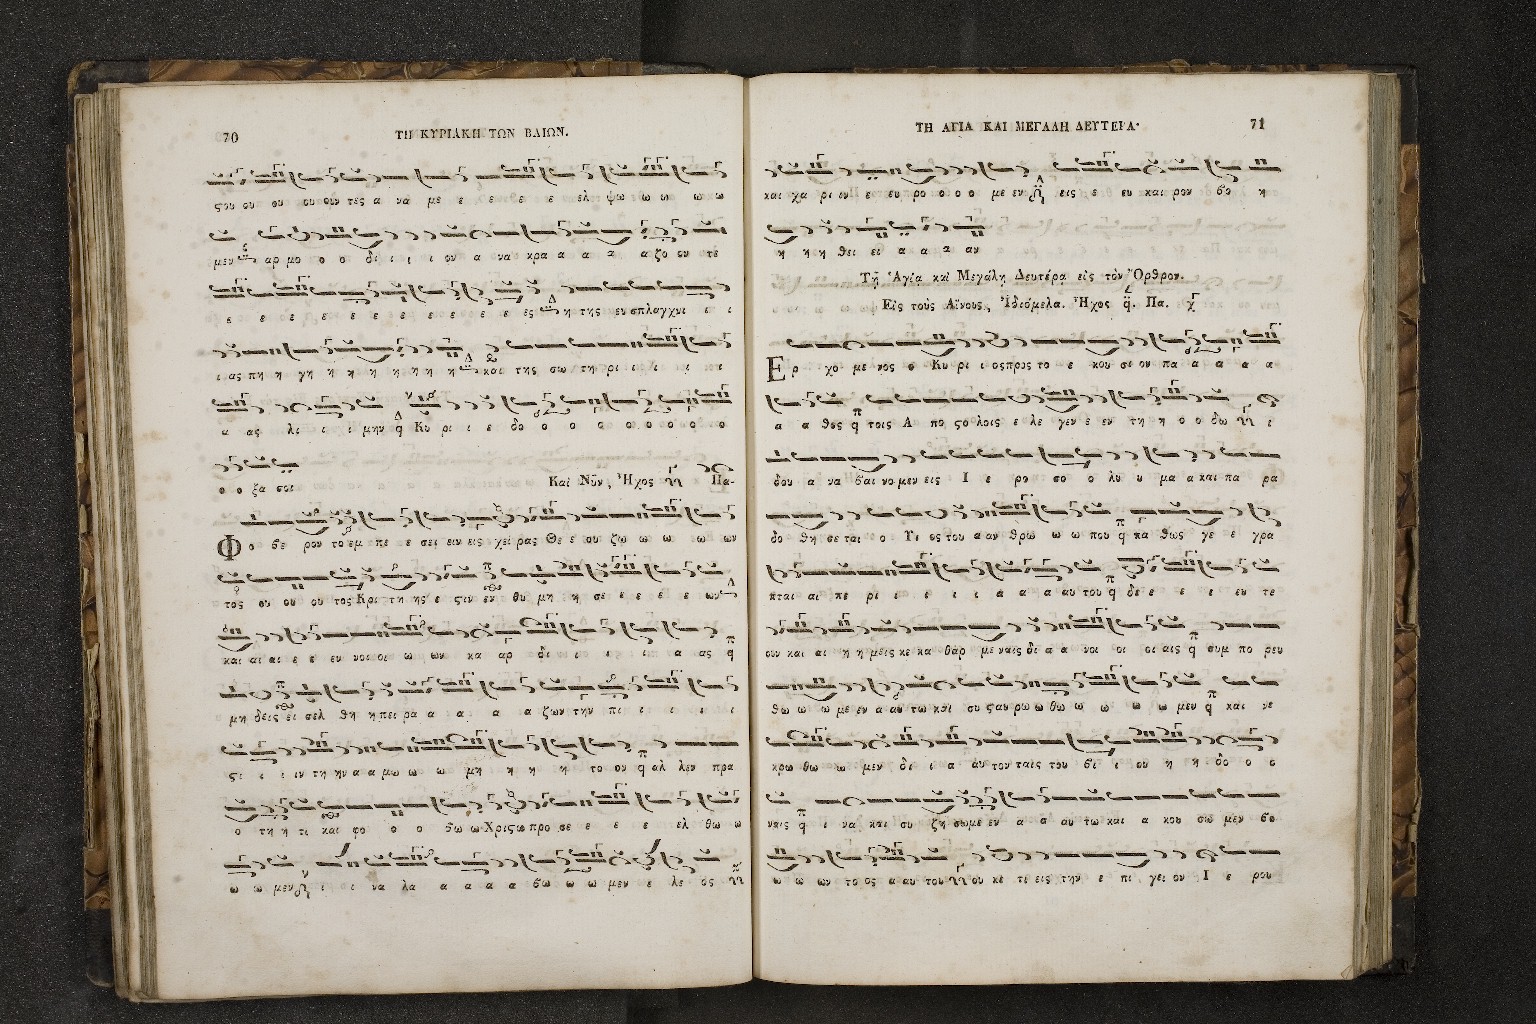 70
ΤΗ ΚΥΡΙΑΚΗ ΤΩΝ ΒΑΙΩΝ.
ϛου ου ου ου ουν τες α να με ε ε ε ε ελ ψω ω ω ω ω
μεν αρ μο ο ο δι ι ι ι ον α να κρα α α α α ζο ον τε
ε ε ε ε ε ε ε ε ε ε ε ες η της ευ σπλαγχνι ι ι
ι ας πη η γη η η η η η η και της σω τη ρι ι ι ι ι
α ας λι ι ι μην Κυ ρι ι ε δο ο ο ο ο ο ο ο ο
ο ο ξα σοι Καὶ Νῦν, Ἦχος Πα-
Φο βε ρον το εμ πε ε σει ειν εις χει ρας Θε ε ου ζω ω ω ω ων
τος ου ου ου τος Κρι τη ης ε ϛιν εν θυ μη η σε ε ε ε ε ων
και αι αι ε ε εν νοι οι ω ων κα αρ δι ι ι ι ι α ας
μη δεις ει σελ θη η πει ρα α α α α ζων την πι ι ι ι ι
ϛι ι ι ιν τη ην α α μω ω ω μη η η η το ον αλ λεν πρα
ο τη η τι και φο ο ο βω ω Χριϛω προ σε ε ε ε ελ θω ω
ω ω μεν ι ι να λα α α α α βω ω ω μεν ε λε ος
ΤΗ ΑΓΙΑ ΚΑΙ ΜΕΓΑΛΗ ΔΕΥΤΕΡΑ·
71
και χα ρι ιν ε ευ ρο ο ο ο με εν εις ε ευ και ρον βο η
η η η θει ει α α α αν
Τῇ Ἁγίᾳ καὶ Μεγάλῃ Δευτέρᾳ εἰς τὸν Ὄρθρον.
Εἰς τοὺς Αἴνους, Ἰδιόμελα. Ἦχος Πα.
Ερ χο με νος ο Κυ ρι ι ος προς το ε κου σι ον πα α α α α
α α θος τοις Α πο ϛο λοις ε λε γεν ε εν τη η ο ο δω ι
δου α να βαι νο μεν εις Ι ε ρο σο ο λυ υ μα α και πα ρα
δο θη σε ται ο Υι ος του α αν θρω ω ω που κα θως γε ε γρα
πται αι πε ρι ι ι ι ι α α α αυ του δε ε ε ε ευ τε
ουν και αι η η μεις κε κα θαρ με ναις δι α α νοι οι οι αις συμ πο ρευ
θω ω ω με εν α αυ τω και συ ϛαυ ρω ω θω ω ω ω ω μεν και νε
κρω θω ω μεν δι ι α αυ τον ταις του βι ι ου η η δο ο ο
ναις ι να και συ ζη σωμε εν α α αυ τω και α κου σω μεν βο
ω ω ων το ος α αυ του ου κε τι εις την ε πι γει ον Ι ε ρου